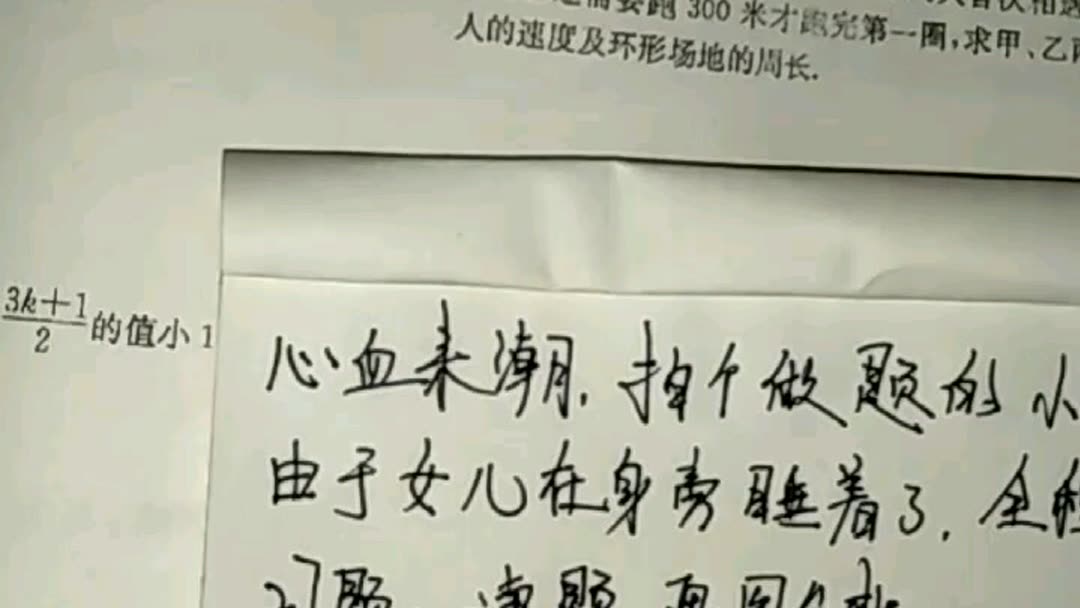 需要跑300米才跑完第一圈,求甲、乙两
人的速度及环形场地的周长.
3k+1/2的值小1
心血来潮.拍个做题的小
由于女儿在身旁睡着了.全
习题